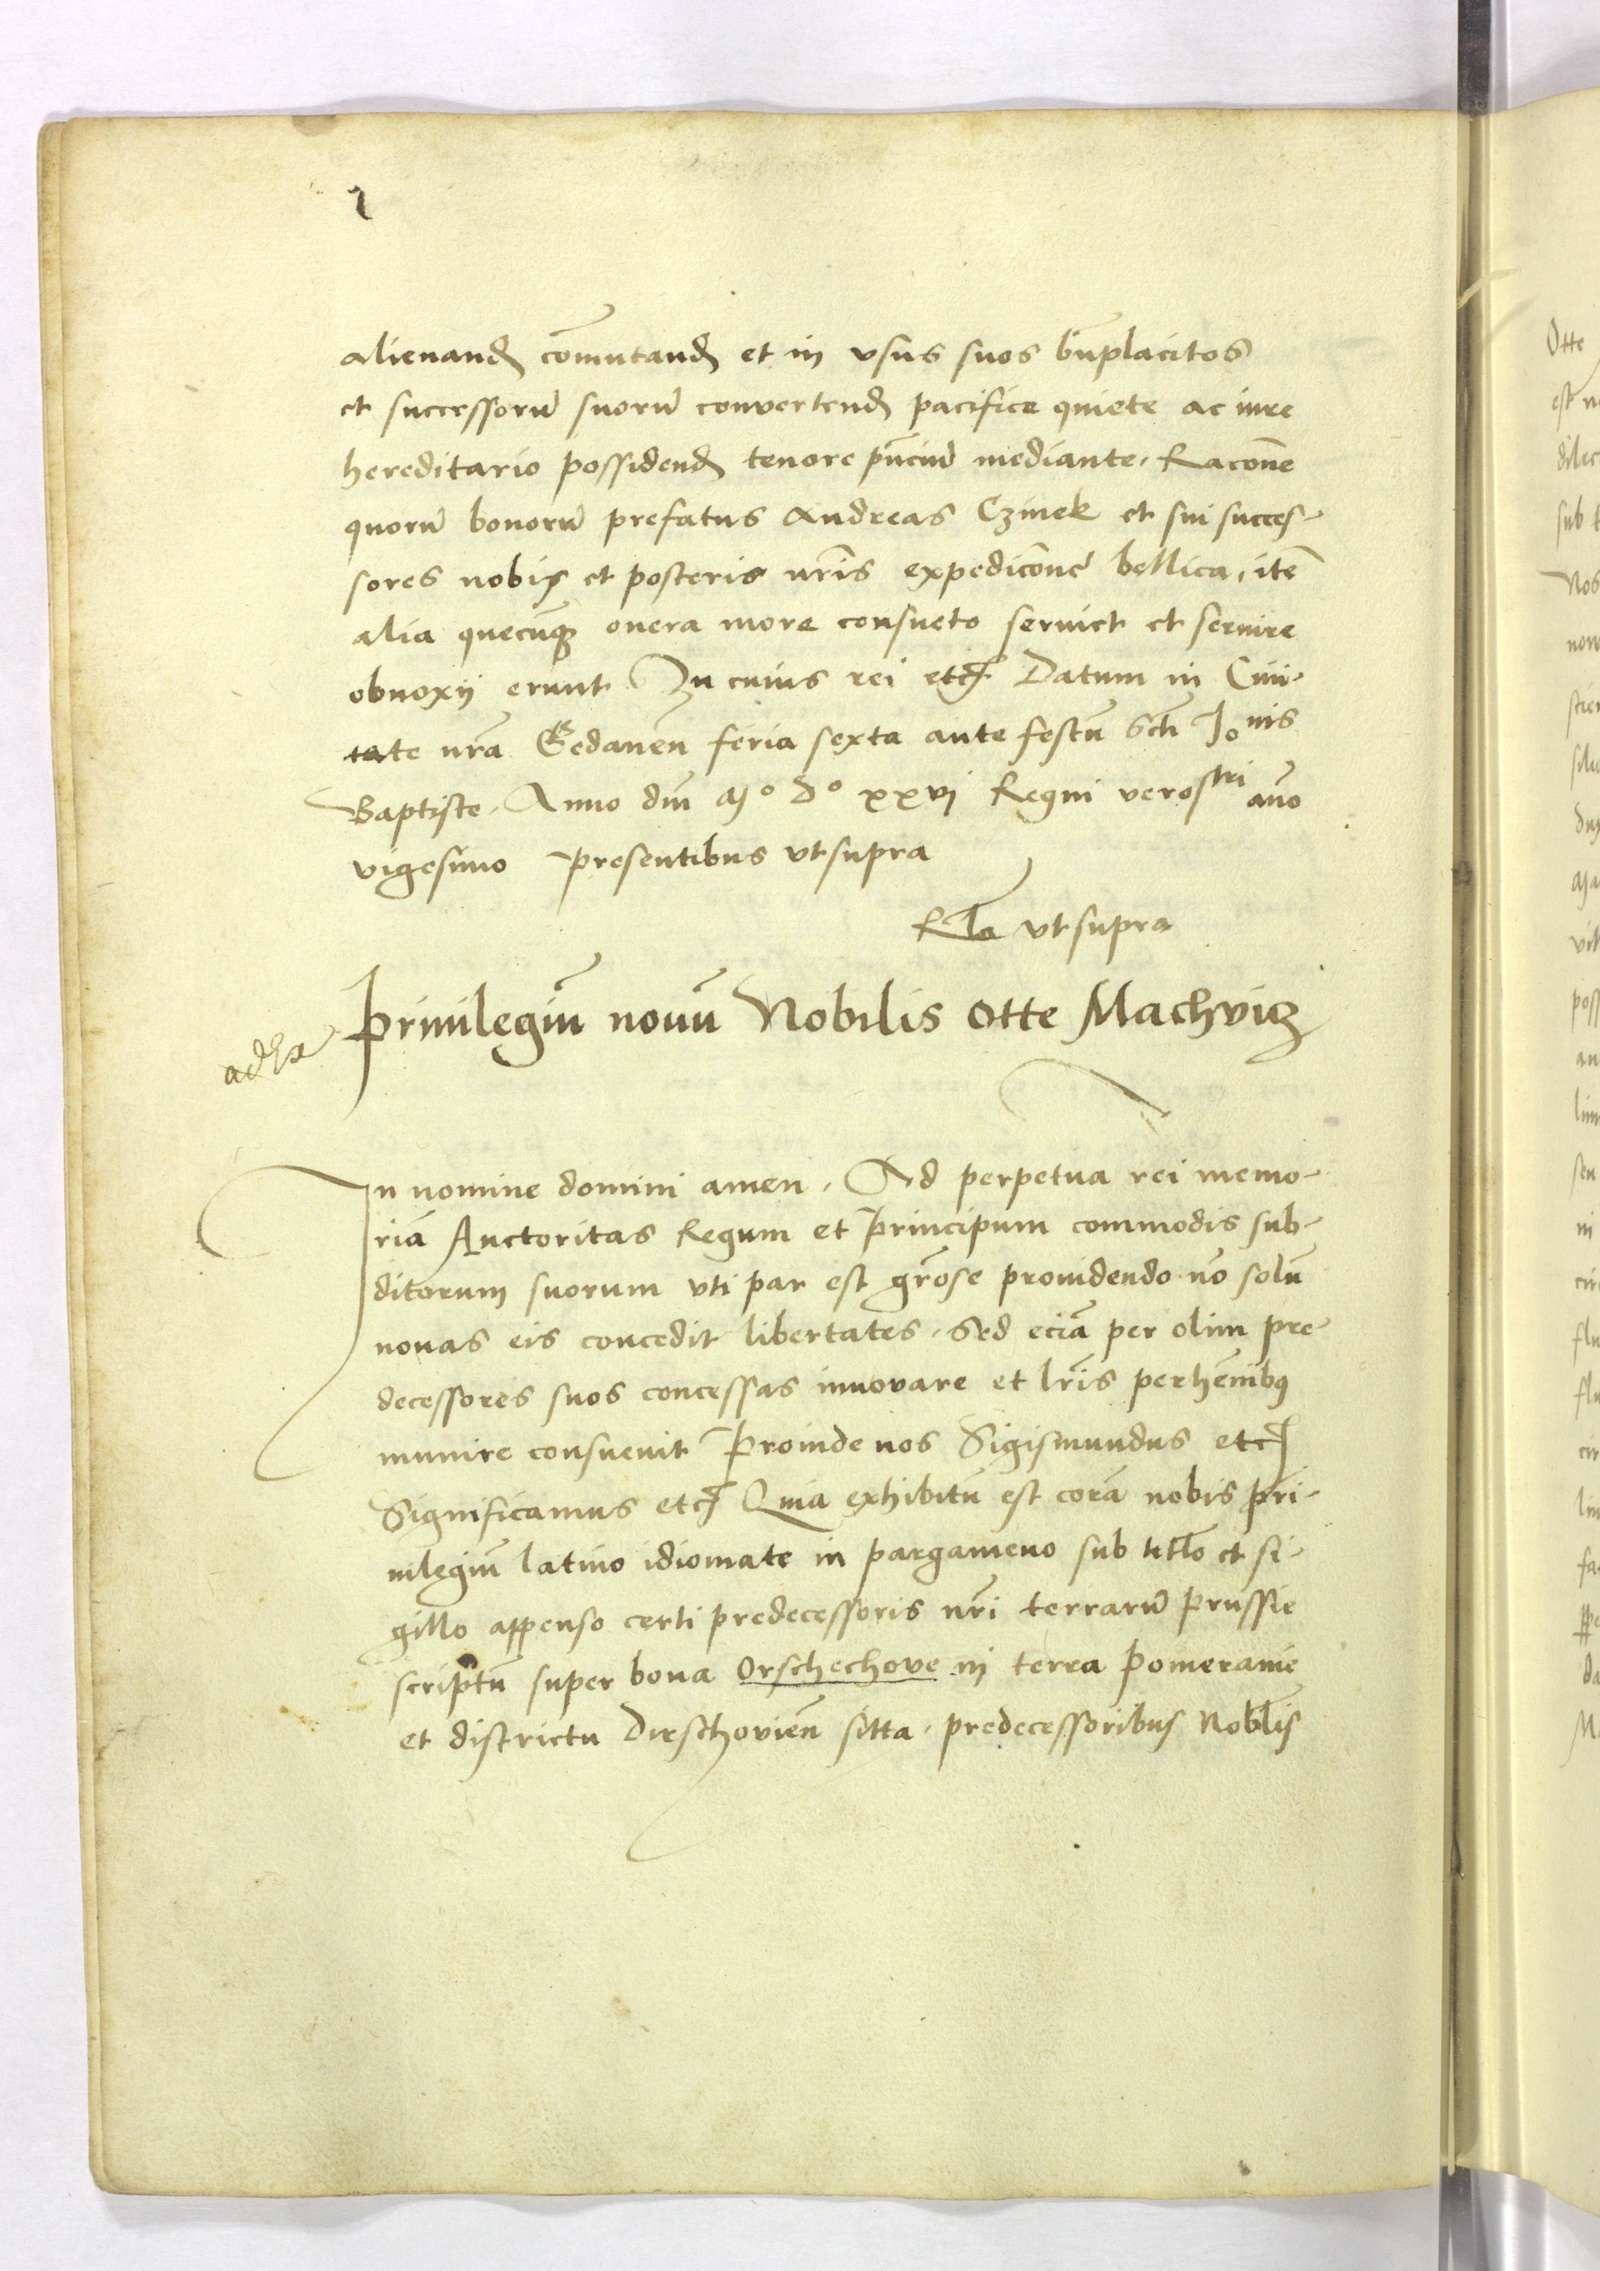 alienand comutand et in vsus suos bnplacitos
et successoru suoru convertend pacifice quiete ac iure
hereditario possidend tenore pntiu mediante. Racone
quoru bonoru prefatus Andreas Czinek et sui succes-
sores nobis et posteris nris expedicone bellica, ite
alia quecuq onera more consueto seruict et seruire
obnoxij erunt In cuius rei etc Datum in Ciui-
tate nra Gedanen feria sexta ante festu Scti Jonis
Baptiste. Anno dni Mo Do xxvi Regni vero nostri ano
vigesimo presentibus vt supra
Rla vt supra
Priuilegiu nouu Nobilis Otte Machviz
In nomine domini amen. Ad perpetua rei memo-
ria Auctoritas Regum et Principum commodis sub-
ditorum suorum vti par est grose prouidendo no solu
nouas eis concedit libertates. Sed ecia per olim pre-
decessores suos concessas innovare et lris perhenibus
munire consueuit Proinde nos Sigismundus etc
Significamus etc Quia exhibitu est cora nobis pri-
uilegiu latino idiomate in pargameno sub titlo et si-
gillo appenso certi predecessoris nri terraru Prussie
scriptu super bona Orschechove in terra Pomeranie
et districtu Dirschovien sitta. predecessoribus Noblis